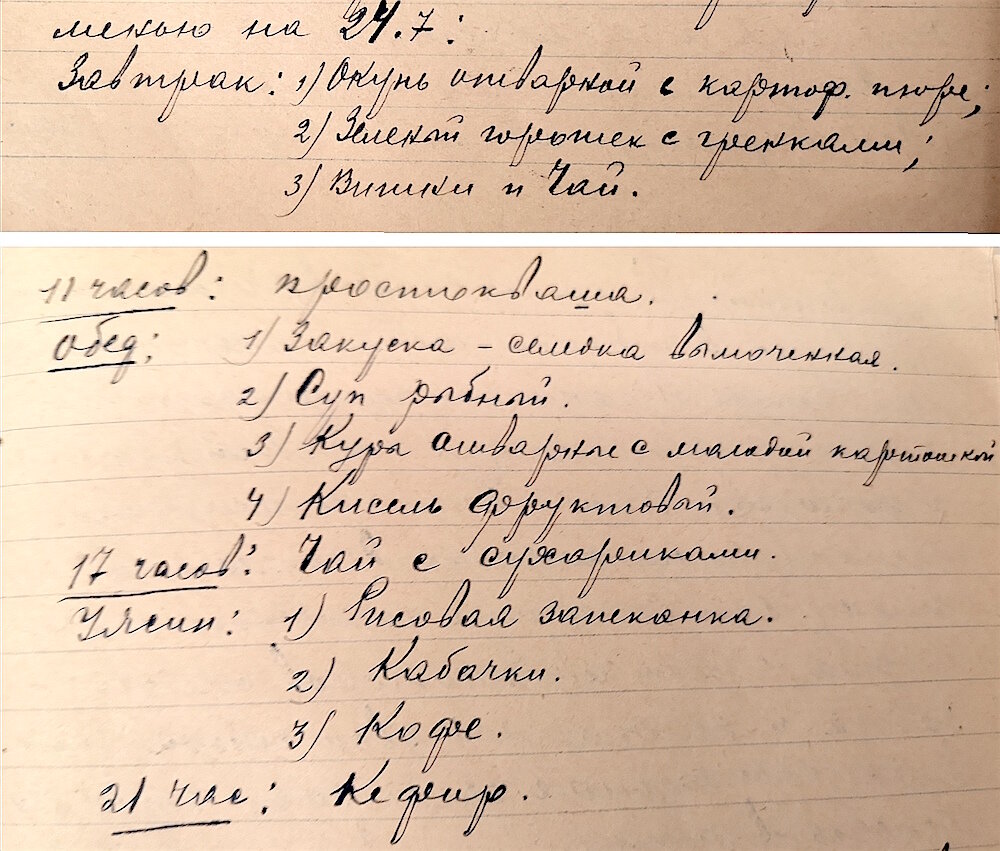 меню на 24.7:
Завтрак: 1) Окунь отварной с картоф. пюре;
2) Зеленый горошек с гренками;
3) Вишни и Чай.
11 часов: простокваша.
Обед: 1) Закуска - селедка вымоченная.
2) Суп рыбный.
3) Куры отварные с молодой картошкой
4) Кисель фруктовый.
17 часов: Чай с сухариками.
Ужин: 1) Рисовая запеканка.
2) Кабачки.
3) Кофе.
21 час: Кефир.